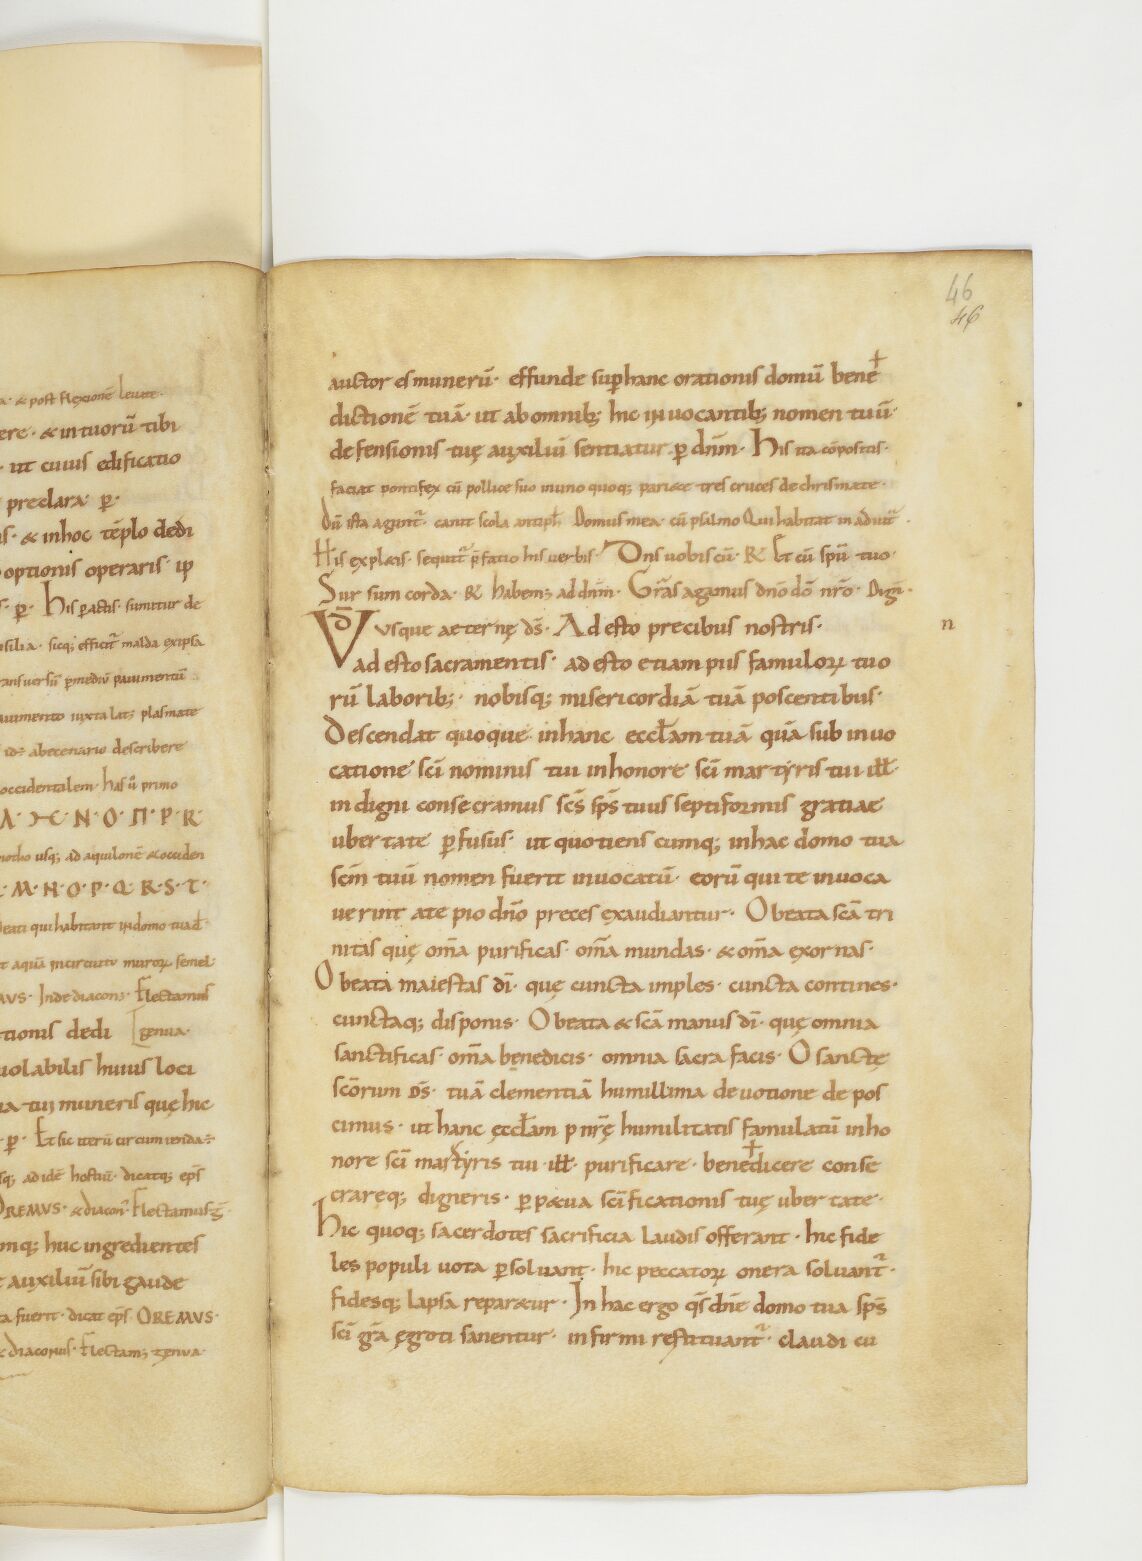 a· & post flexionē leuate·
ere· & in tuorū tibi
· ut cuius edificatio
preclara· p̱·
is· & in hoc tēplo dedi
optionis operaris· ip
s· p̱· His ꝑactis· sumitur de
silia· sicq; efficit̄ malda ex ipsa
ransuersū ꝑ mediū pauimentū
auimento iuxta lat; plasmate
id÷ abecenario describere
occidentalem· has ū primo
Λ· Ͻ-Ϲ· N· O· Π· P· R·
usq; ad aquilonē & occiden
· M· N· O· P· Q· R· S· T·
Beati qui habitant in domo tua d̄·
t aquā in circuitu muroꝝ semel·
MVS· Inde diacon;· Flectamus
tionis dedi [genua·
uolabilis huius loci
ua tui muneris quę hic
· p̱· Et sic iterū circumienda÷
sq; ad idē hostiū· dicatq; ep̄s
OREMVS· & diacon̄· Flectamus ḡ·
mq; huc ingredientes
t auxiliū sibi gaude
ta fuerit· dicat ep̄s· OREMVS·
& diaconus· Flectam; genua·
46
46
auctor es munerū· effunde suꝑ hanc orationis domū bene✝
dictionē tuā· ut ab omnib; hic inuocantib; nomen tuū·
defensionis tuę auxiliū sentiatur· ꝑ dn̄m· His ita cōpositis·
faciat pontifex cū pollice suo in uno quoq; pariete tres cruces de chrismate·
Dū ista agunt̄· canit scola antiph̄· Domus mea· cū psalmo Qui habitat in adiut̄·
His expletis· sequit̄ p̄fatio his uerbis· Dn̄s uobiscū· R& Et cū spū tuo·
Sursum corda· R& Habem; ad dn̄m· Gr̄as agamus dn̄o dō nr̄o· Dign̄·
VD usque aeternę ds̄· Adesto precibus nostris·
n
adesto sacramentis· adesto etiam piis famuloꝝ tuo
rū laborib;· nobisq; misericordiā tuā poscentibus·
Descendat quoque in hanc eccl̄am tuā quā sub inuo
catione sc̄i nominis tui in honore sc̄i martyris tui ill̄
indigni consecramus sc̄s sp̄s tuus septiformis gratiae
ubertate ꝑfusus· ut quotienscumq; in hac domo tua
sc̄m tuū nomen fuerit inuocatū· eorū qui te inuoca
uerint a te pio dn̄o preces exaudiantur· O beata sc̄a tri
nitas quę om̄a purificas· om̄a mundas· & om̄a exornas·
O beata maiestas dī· quę cuncta imples· cuncta contines·
cunctaq; disponis· O beata & sc̄a manus dī· quę omnia
sanctificas· om̄a benedicis· omnia sacra facis· O sanctę
sc̄orum ds̄· tuā clementiā humillima deuotione depos
cimus· ut hanc ęccl̄am p nr̄ę humilitatis famulatū in ho
nore sc̄i martyris tui ill̄· purificare· bene✝dicere conse
crareq; digneris· ꝑpetua sc̄ificationis tuę ubertate·
Hic quoq; sacerdotes sacrificia laudis offerant· hic fide
les populi uota ꝑsoluant· hic peccatoꝝ onera soluant̄·
fidesq; lapsa reparetur· In hac ergo qs̄ dn̄e domo tua sp̄s
sc̄i gr̄a ęgroti sanentur· infirmi restituant̄· claudi cu